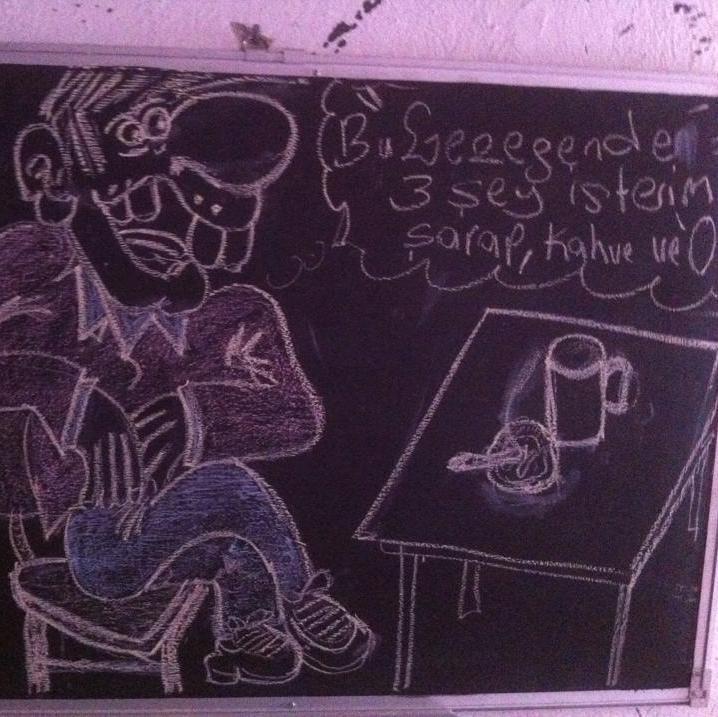 Bu Gezegenden
3 şey isterim
Şarap, kahve ve O